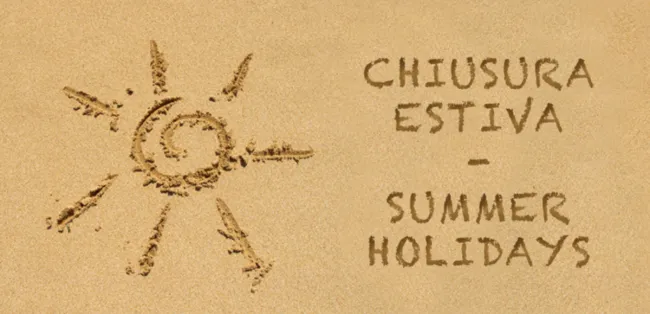 CHIUSURA
ESTIVA
–
SUMMER
HOLIDAYS